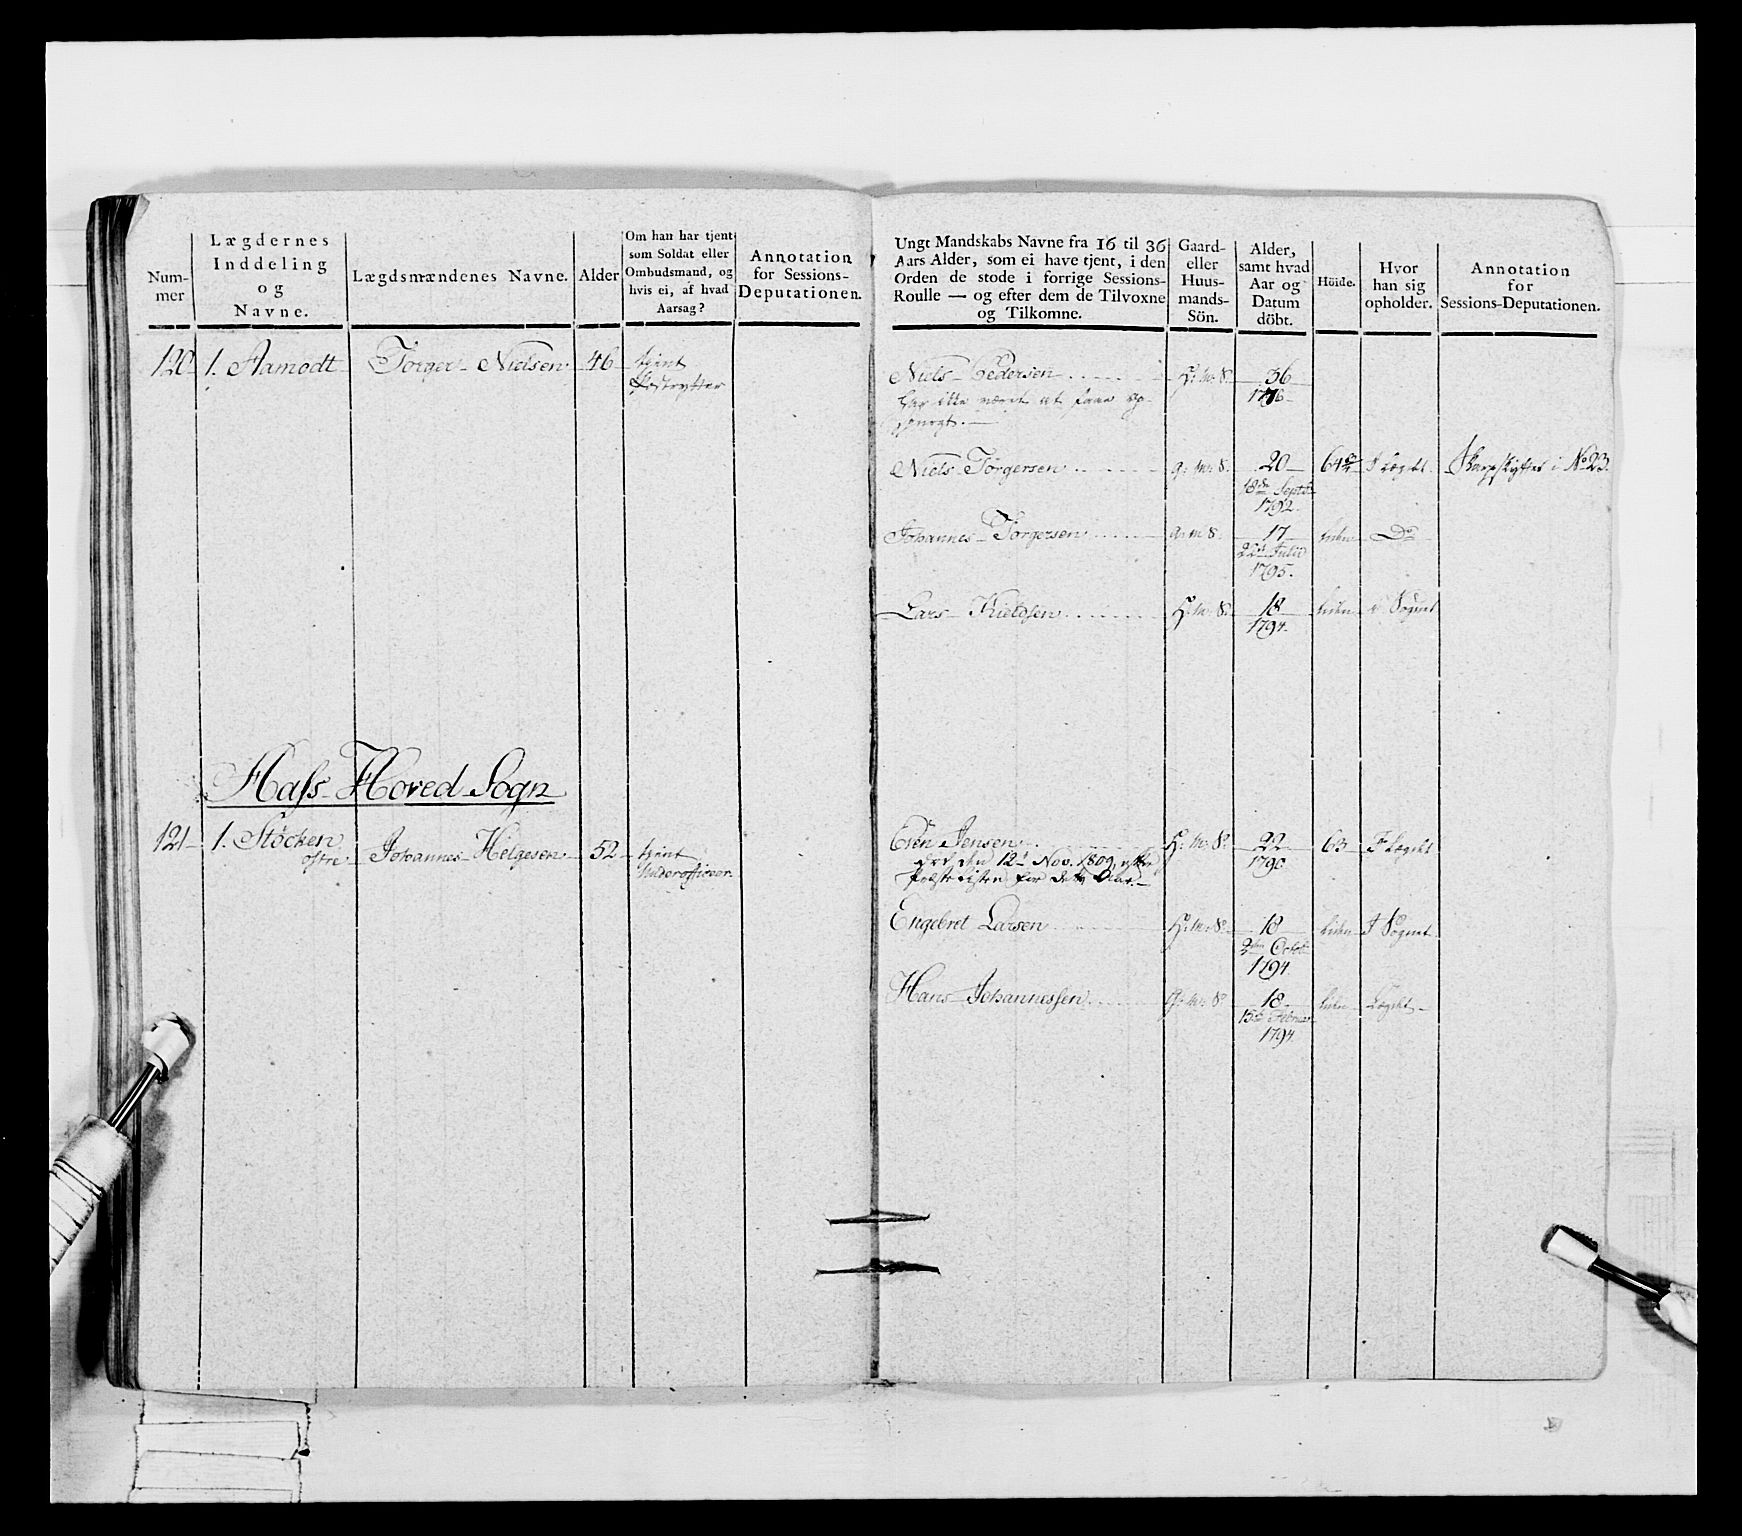 Num-
mer
Lægdernes
Inddeling
og
Navne.
Lægdsmændenes Navne.
Alder
Om han har tjent
som Soldat eller
Ombudsmand, og
hvis ei, af hvad
Aarsag?
Annotation
for Sessions-
Deputationen.
120 1. Aamodt Torger Nielsen 46 tjent
Hass Hoved Sogn
121 1. Stöcken Johannes Helgesen 52 tjent
östre Underofficeer
Ungt Mandskabs Navne fra 16 til 36
Aars Alder, som ei have tjent, i den
Orden de stode i forrige Sessions-
Roulle — og efter dem de Tilvoxne
og Tilkomne.
Gaard-
eller
Huus-
mands-
Sön.
Alder,
samt hvad
Aar og
Datum
döbt.
Höide.
Hvor
han sig
opholder.
Annotation
for
Sessions-Deputationen.
Niels Pedersen H: m: S. 36
har ikke været at faae op- 1776
spurgt.
Niels Törgersen G: m: S. 20 64 I Lægdet Skarpskytter i No 23.
18de Septbr
1792.
Johannes Törgersen G: m S. 17 liden Do
22de Julii
1795.
Lars Kieldsen H: m: S. 18 liden i Sognet
1794.
Even Jensen H: m: S. 22 63 I Lægdet
død den 12te Nov. 1809, efter 1790
Præste Listen for dette Aar.
Engebret Larsen H: m: S. 18 liden I Sognet
2den Octob
1794
Hans Johannessen G: m: S. 18 liden Lægdet
15de Februar
1794.